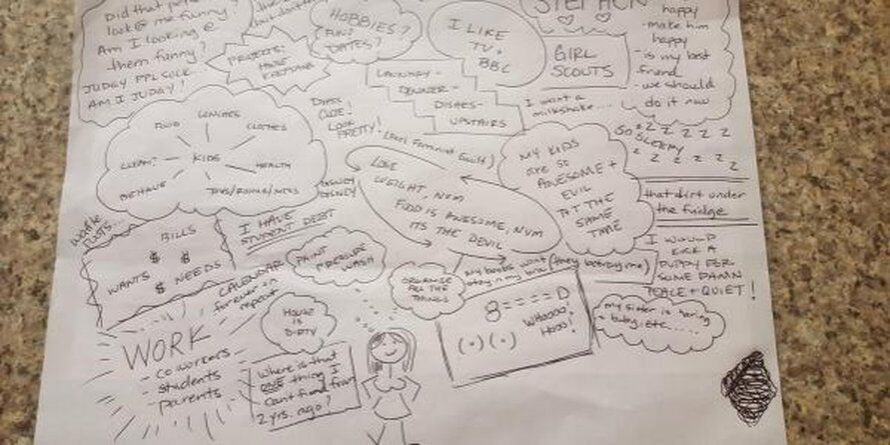 Did that pe
look @ me funny?
Am I looking @
them funny?
JUDGY PPL SUCK.
AM I JUDGY?
PROJECTS:
HOUSE
HOBBIES?
FUND
DATES?
I LIKE
TV +
BBC
STEPHON
GIRL
SCOUTS
happy
- make him
happy
- is my best
friend
- we should
do it now
LAUNDRY -
DINNER -
DISHES -
UPSTAIRS
I want a
milkshake....
FOOD
LUNCHES
CLOTHES
CLEAN?
KIDS
HEALTH
BEHAVE
CUTE!
LOOK
PRETTY!
SO SLEEPY
z z z z z
z z z z z
MY KIDS
ARE SO
AWESOME +
EVIL
AT THE
SAME
TIME
LOSE
WEIGHT, NUM
FOOD IS AWESOME, NUM
ITS THE DEVIL
DISNEY
DISNEY
that dirt under
the fridge
BILLS
$ $
WANTS $ NEEDS
I HAVE
STUDENT DEBT
CALENDAR
forever on
repeat
PAINT
PRESSURE
WASH
ORGANIZE
ALL THE
THINGS
My boobs want
(they betray me)
I WOULD
KICK A
PUPPY FOR
SOME DAMN
PEACE + QUIET!
HOUSE
IS
DIRTY
8====D
WHOOOO!
HOOO!
(.)(.)
my sister is having
a baby, etc.....
WORK
- coworkers
- students
- parents
Where is that
ONE thing I
cant find from
2 yrs. ago?